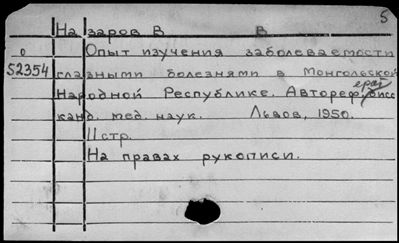 5
Назаров В В
О Опыт изучения заболеваемости
52354 глазными болезнями в Монгольской
Народной Республике. Автореф. дисс
канд. мед. наук. Львов, 1950.
11 стр.
На правах рукописи.